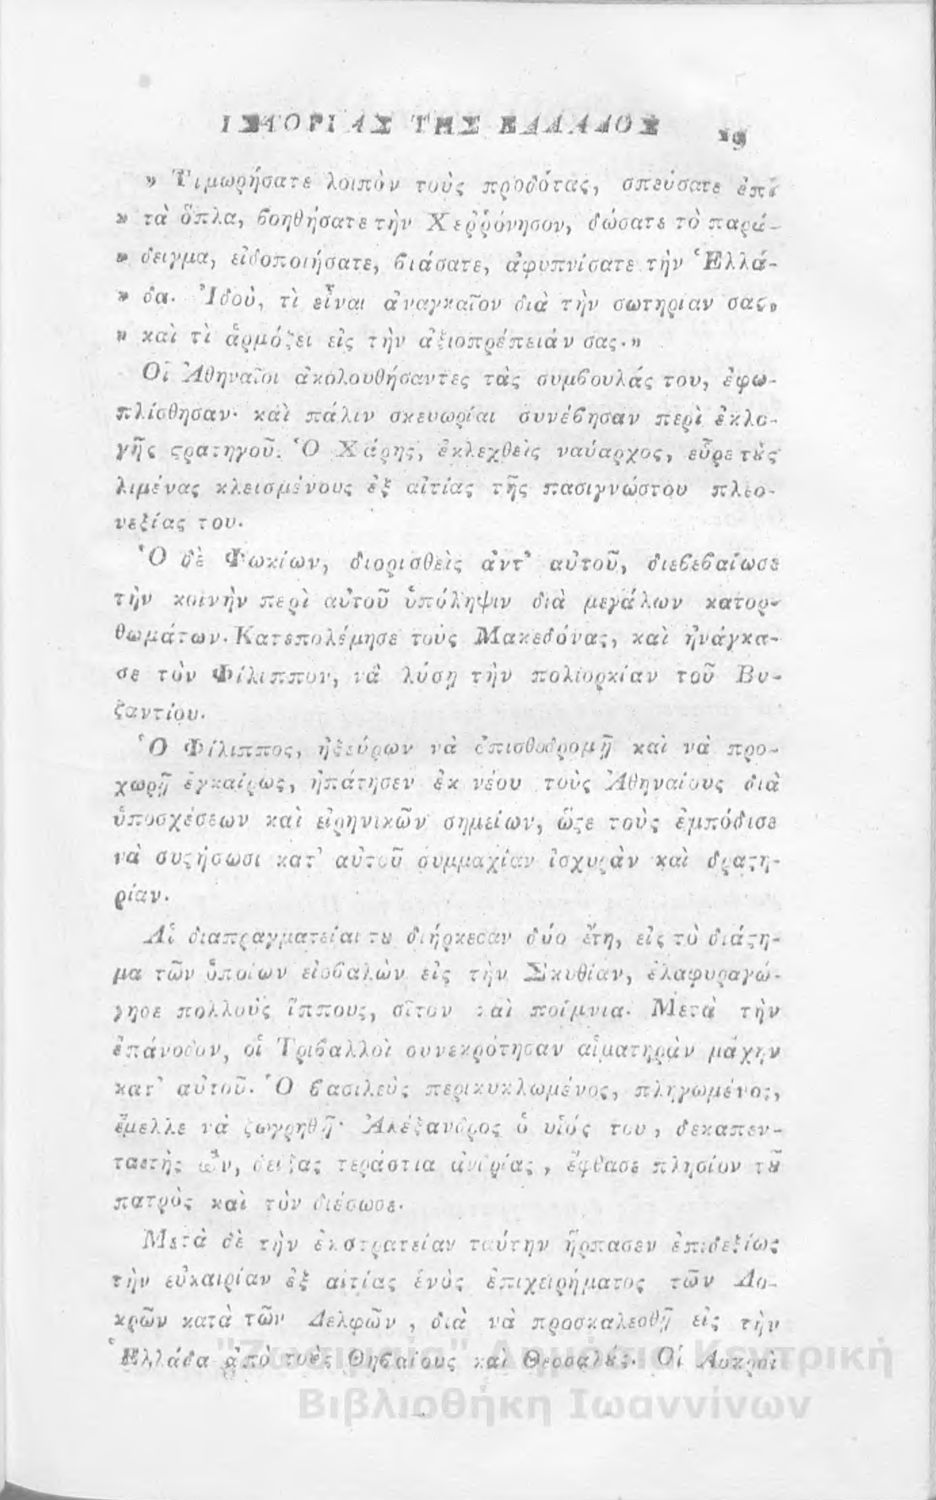 ΙΣΤΟΡΙΑΣ ΤΗΣ ΕΛΛΑΔΟΣ 19
» Τιμωρήσατε λοιπὸν τοὺς προδότας, σπεύσατε ἐπὶ
» τὰ ὅπλα, βοηθήσατε τὴν Χερῤῥόνησον, δώσατε τὸ παρά-
» δειγμα, εἰδοποιήσατε, βιάσατε, ἀφυπνίσατε τὴν Ἑλλά-
» δα· Ἰδοὺ, τὶ εἶναι ἀναγκαῖον διὰ τὴν σωτηρίαν σας,
» καὶ τὶ ἁρμόζει εἰς τὴν ἀξιοπρέπειάν σας·»
Οἱ Ἀθηναῖοι ἀκολουθήσαντες τὰς συμβουλάς του, ἐφω-
πλίσθησαν· καὶ πάλιν σκευωρίαι συνέβησαν περὶ ἐκλο-
γῆς ϛρατηγοῦ. Ὁ Χάρης, ἐκλεχθεὶς ναύαρχος, εὗρε τȣ̀ς
λιμένας κλεισμένους ἐξ αἰτίας τῆς πασιγνώστου πλεο-
νεξίας του·
Ὁ δὲ Φωκίων, διορισθεὶς ἀντ' αὐτοῦ, διεβεβαίωσε
τὴν κοινὴν περὶ αὐτοῦ ὑπόληψιν διὰ μεγάλων κατορ-
θωμάτων· Κατεπολέμησε τοὺς Μακεδόνας, καὶ ἠνάγκα-
σε τὸν Φίλιππον, νὰ λύσῃ τὴν πολιορκίαν τοῦ Βυ-
ζαντίου·
Ὁ Φίλιππος, ἠξεύρων νὰ ὀπισθοδρομῇ καὶ νὰ προ-
χωρῇ ἐγκαίρως, ἠπάτησεν ἐκ νέου τοὺς Ἀθηναίους διὰ
ὑποσχέσεων καὶ εἰρηνικῶν σημείων, ὥϛε τοὺς ἐμπόδισε
νὰ συϛήσωσι κατ' αὐτοῦ συμμαχίαν ἰσχυρὰν καὶ δραϛη-
ρίαν·
Αἱ διαπραγματείαι τȣ διήρκεσαν δύο ἔτη, εἰς τὸ διάϛη-
μα τῶν ὁποίων εἰσβαλὼν εἰς τὴν Σκυθίαν, ἐλαφυραγώ-
γησε πολλοὺς ἵππους, σῖτον καὶ ποίμνια· Μετὰ τὴν
ἐπάνοδον, οἱ Τριβαλλοὶ συνεκρότησαν αἱματηρὰν μάχην
κατ' αὐτοῦ· Ὁ βασιλεὺς περικυκλωμένος, πληγωμένος,
ἔμελλε νὰ ζωγρηθῇ· Ἀλέξανδρος ὁ υἱός του, δεκαπεν-
ταετὴς ὢν, δείξας τεράστια ἀνδρίας, ἔφθασε πλησίον τȣ͂
πατρὸς καὶ τὸν διέσωσε·
Μετὰ δὲ τὴν ἐκστρατείαν ταύτην ἥρπασεν ἐπιδεξίως
τὴν εὐκαιρίαν ἐξ αἰτίας ἑνὸς ἐπιχειρήματος τῶν Λο-
κρῶν κατὰ τῶν Δελφῶν, διὰ νὰ προσκαλεσθῇ εἰς τὴν
Ἑλλάδα ἀπὸ τοὺς Θηβαίους καὶ Θεσσαλȣ́ς· Οἱ Λοκροὶ
"Ζωσιμαία" Δημόσια Κεντρική
Βιβλιοθήκη Ιωαννίνων